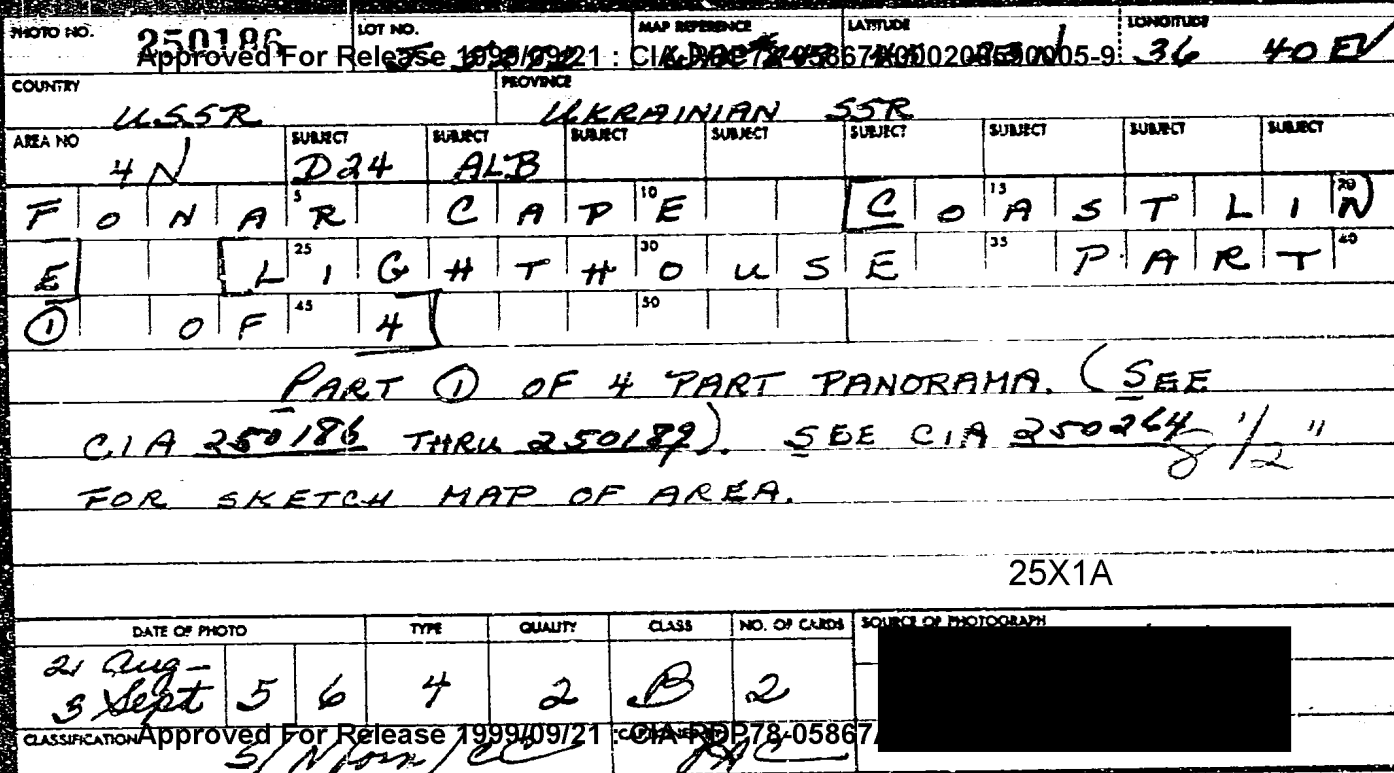 PHOTO NO. LOT NO. MAP REFERENCE LATITUDE LONGITUDE
250186 36 40 E
Approved For Release 1999/09/21 : CIA-RDP78-05867A000200590005-9
COUNTRY PROVINCE
U.S.S.R. UKRAINIAN SSR
AREA NO SUBJECT SUBJECT SUBJECT SUBJECT SUBJECT SUBJECT SUBJECT SUBJECT
4 N D24 ALB
5 10 15 20
FONAR CAPE COASTLIN
25 30 35 40
E LIGHTHOUSE PART
45 50
1 OF 4
PART 1 OF 4 PART PANORAMA. (SEE
CIA 250186 THRU 250189). SEE CIA 250264 8 1/2"
FOR SKETCH MAP OF AREA.
25X1A
DATE OF PHOTO TYPE QUALITY CLASS NO. OF CARDS SOURCE OF PHOTOGRAPH
21 Aug-
3 Sept 5 6 4 2 B 2
CLASSIFICATION Approved For Release 1999/09/21 : CIA-RDP78-05867A